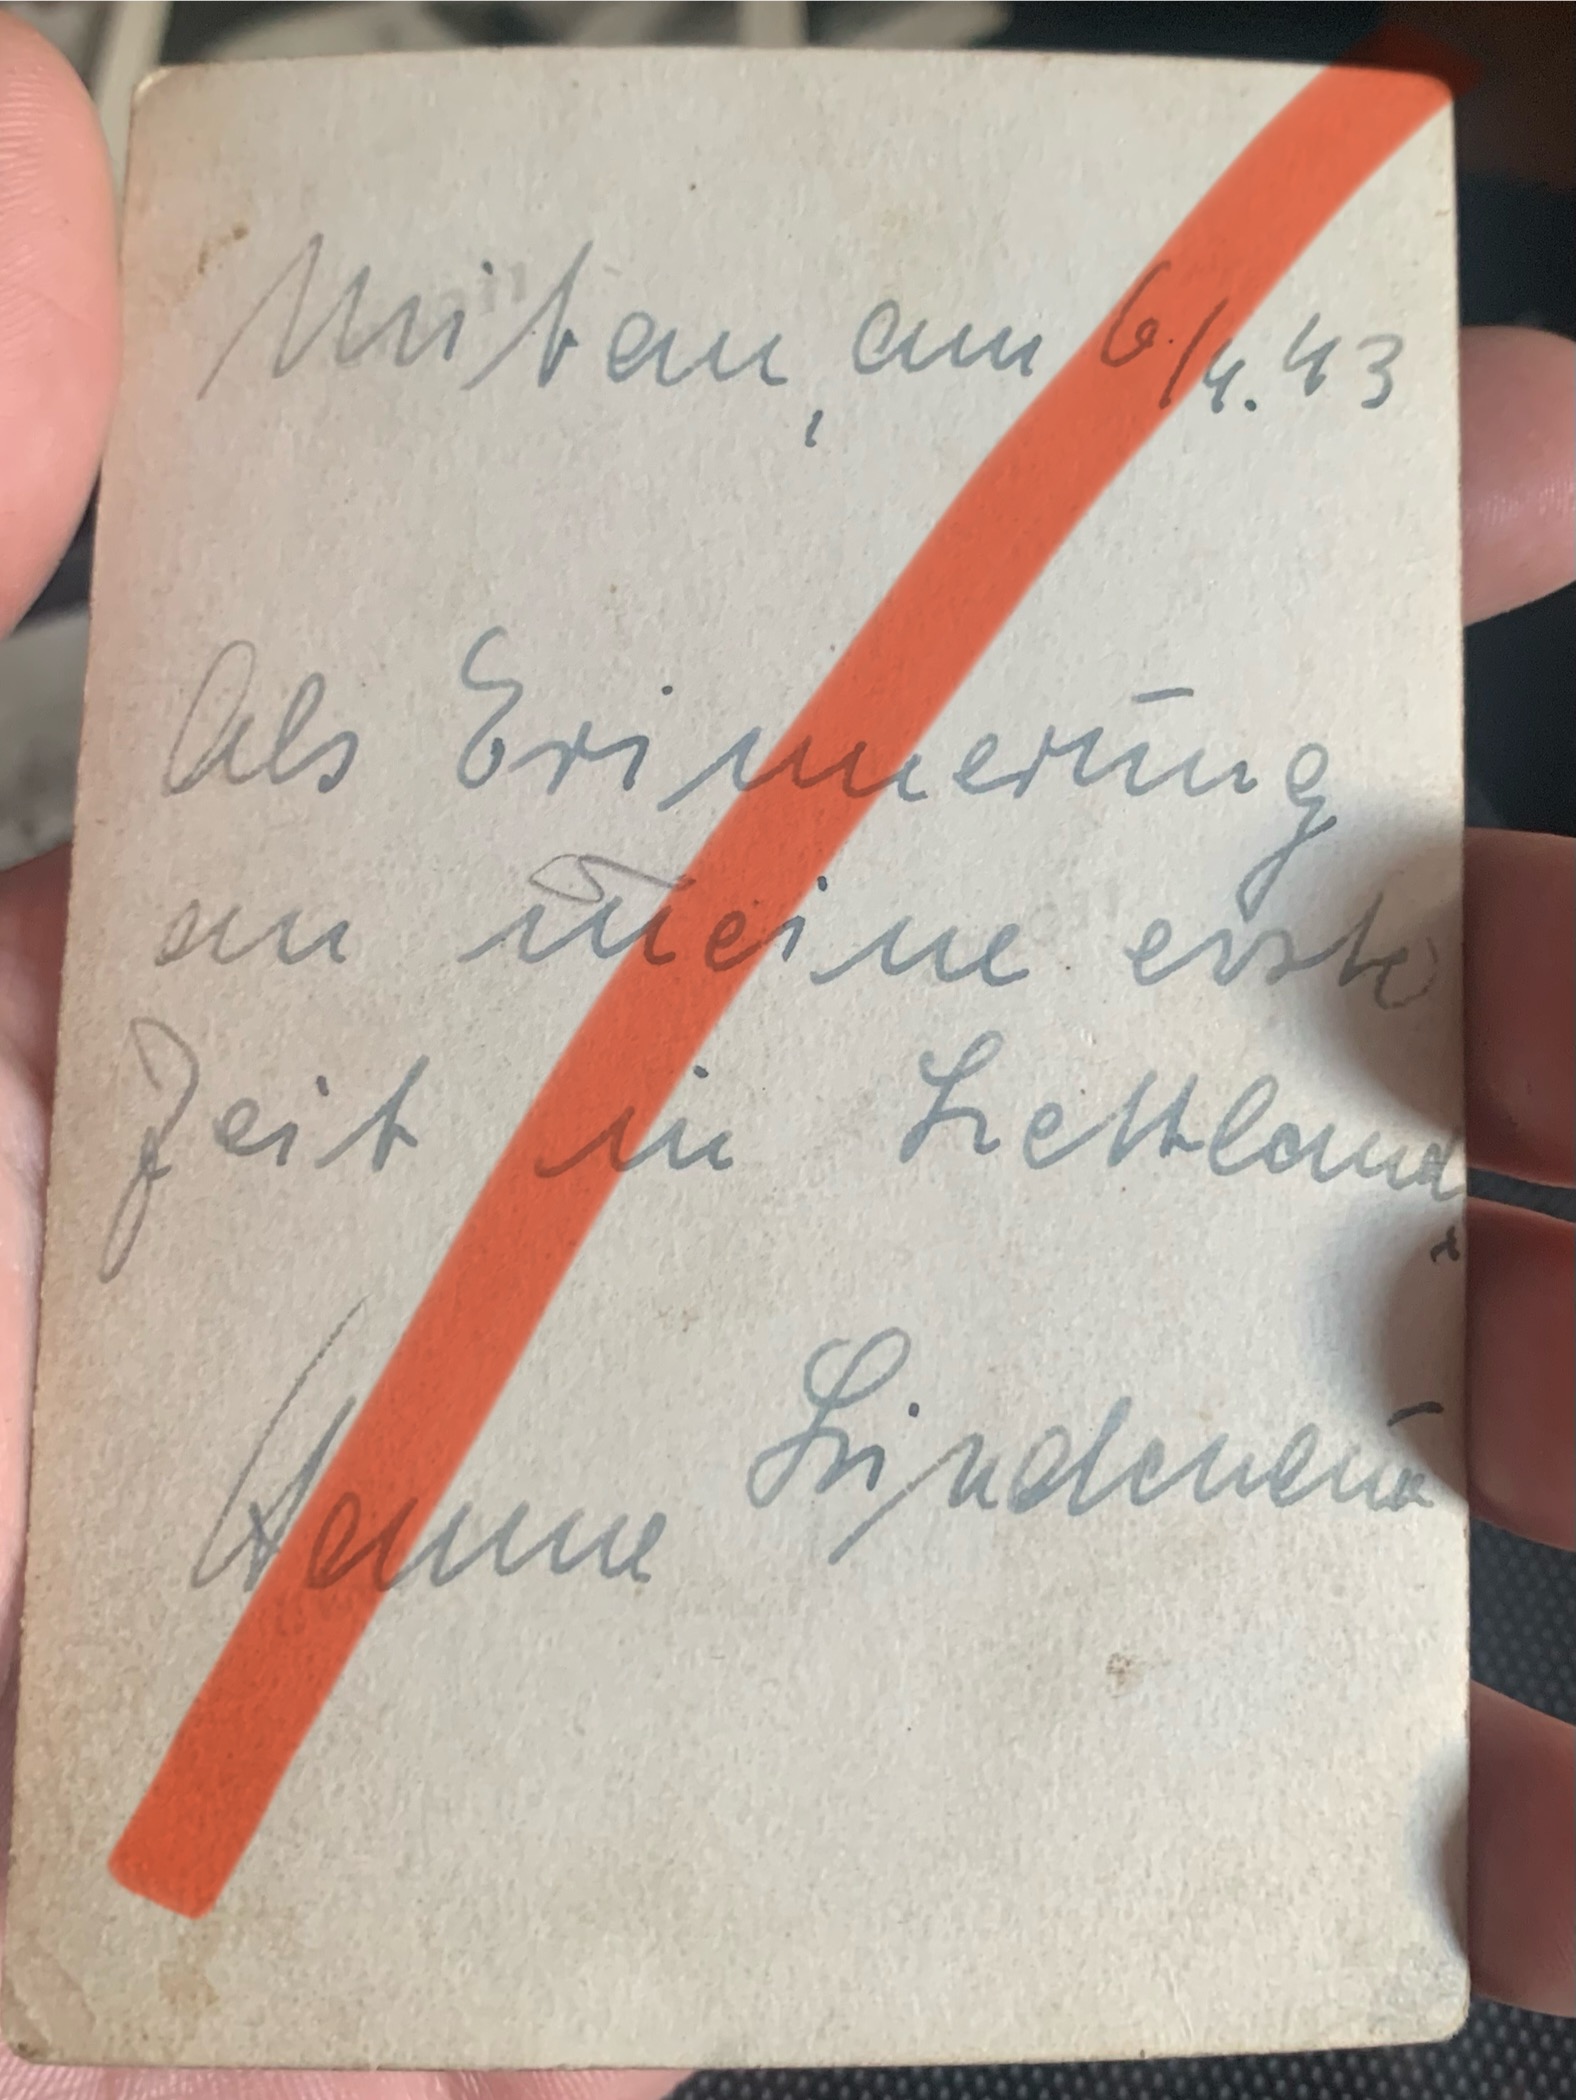 Mitau, am 6./4. 43
Als Erinnerung
an meine erste
Zeit in Lettland.
Hanne Lindenau